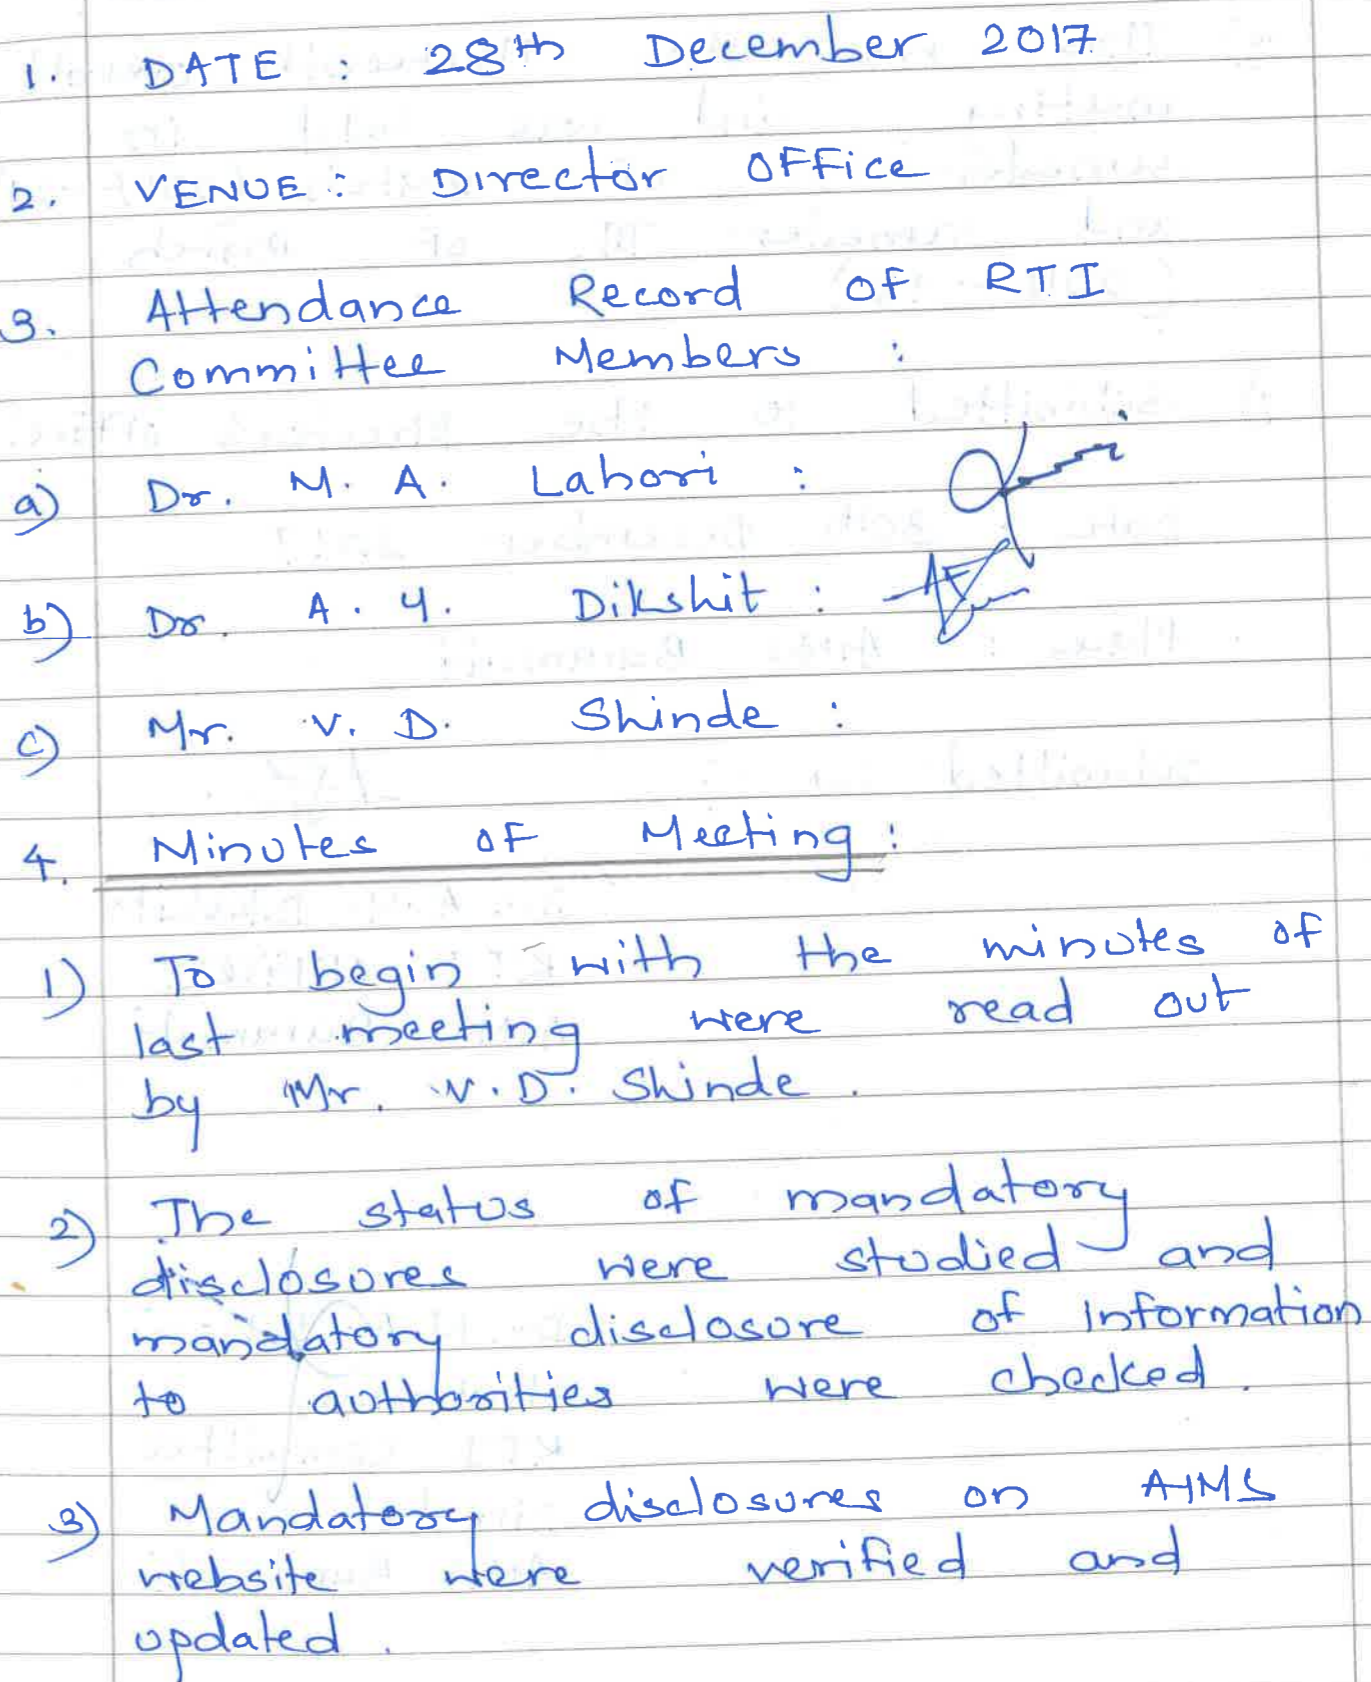 1. DATE : 28th December 2017
2. VENUE : Director Office
3. Attendance Record of RTI
Committee Members :
a) Dr. M. A. Lahori :
b) Dr. A. Y. Dikshit :
c) Mr. V. D. Shinde :
4. Minutes of Meeting :
1) To begin with the minutes of
last meeting were read out
by Mr. V. D. Shinde .
2) The status of mandatory
disclosures were studied and
mandatory disclosure of information
to authorities were checked .
3) Mandatory disclosures on AIMS
website were verified and
updated .